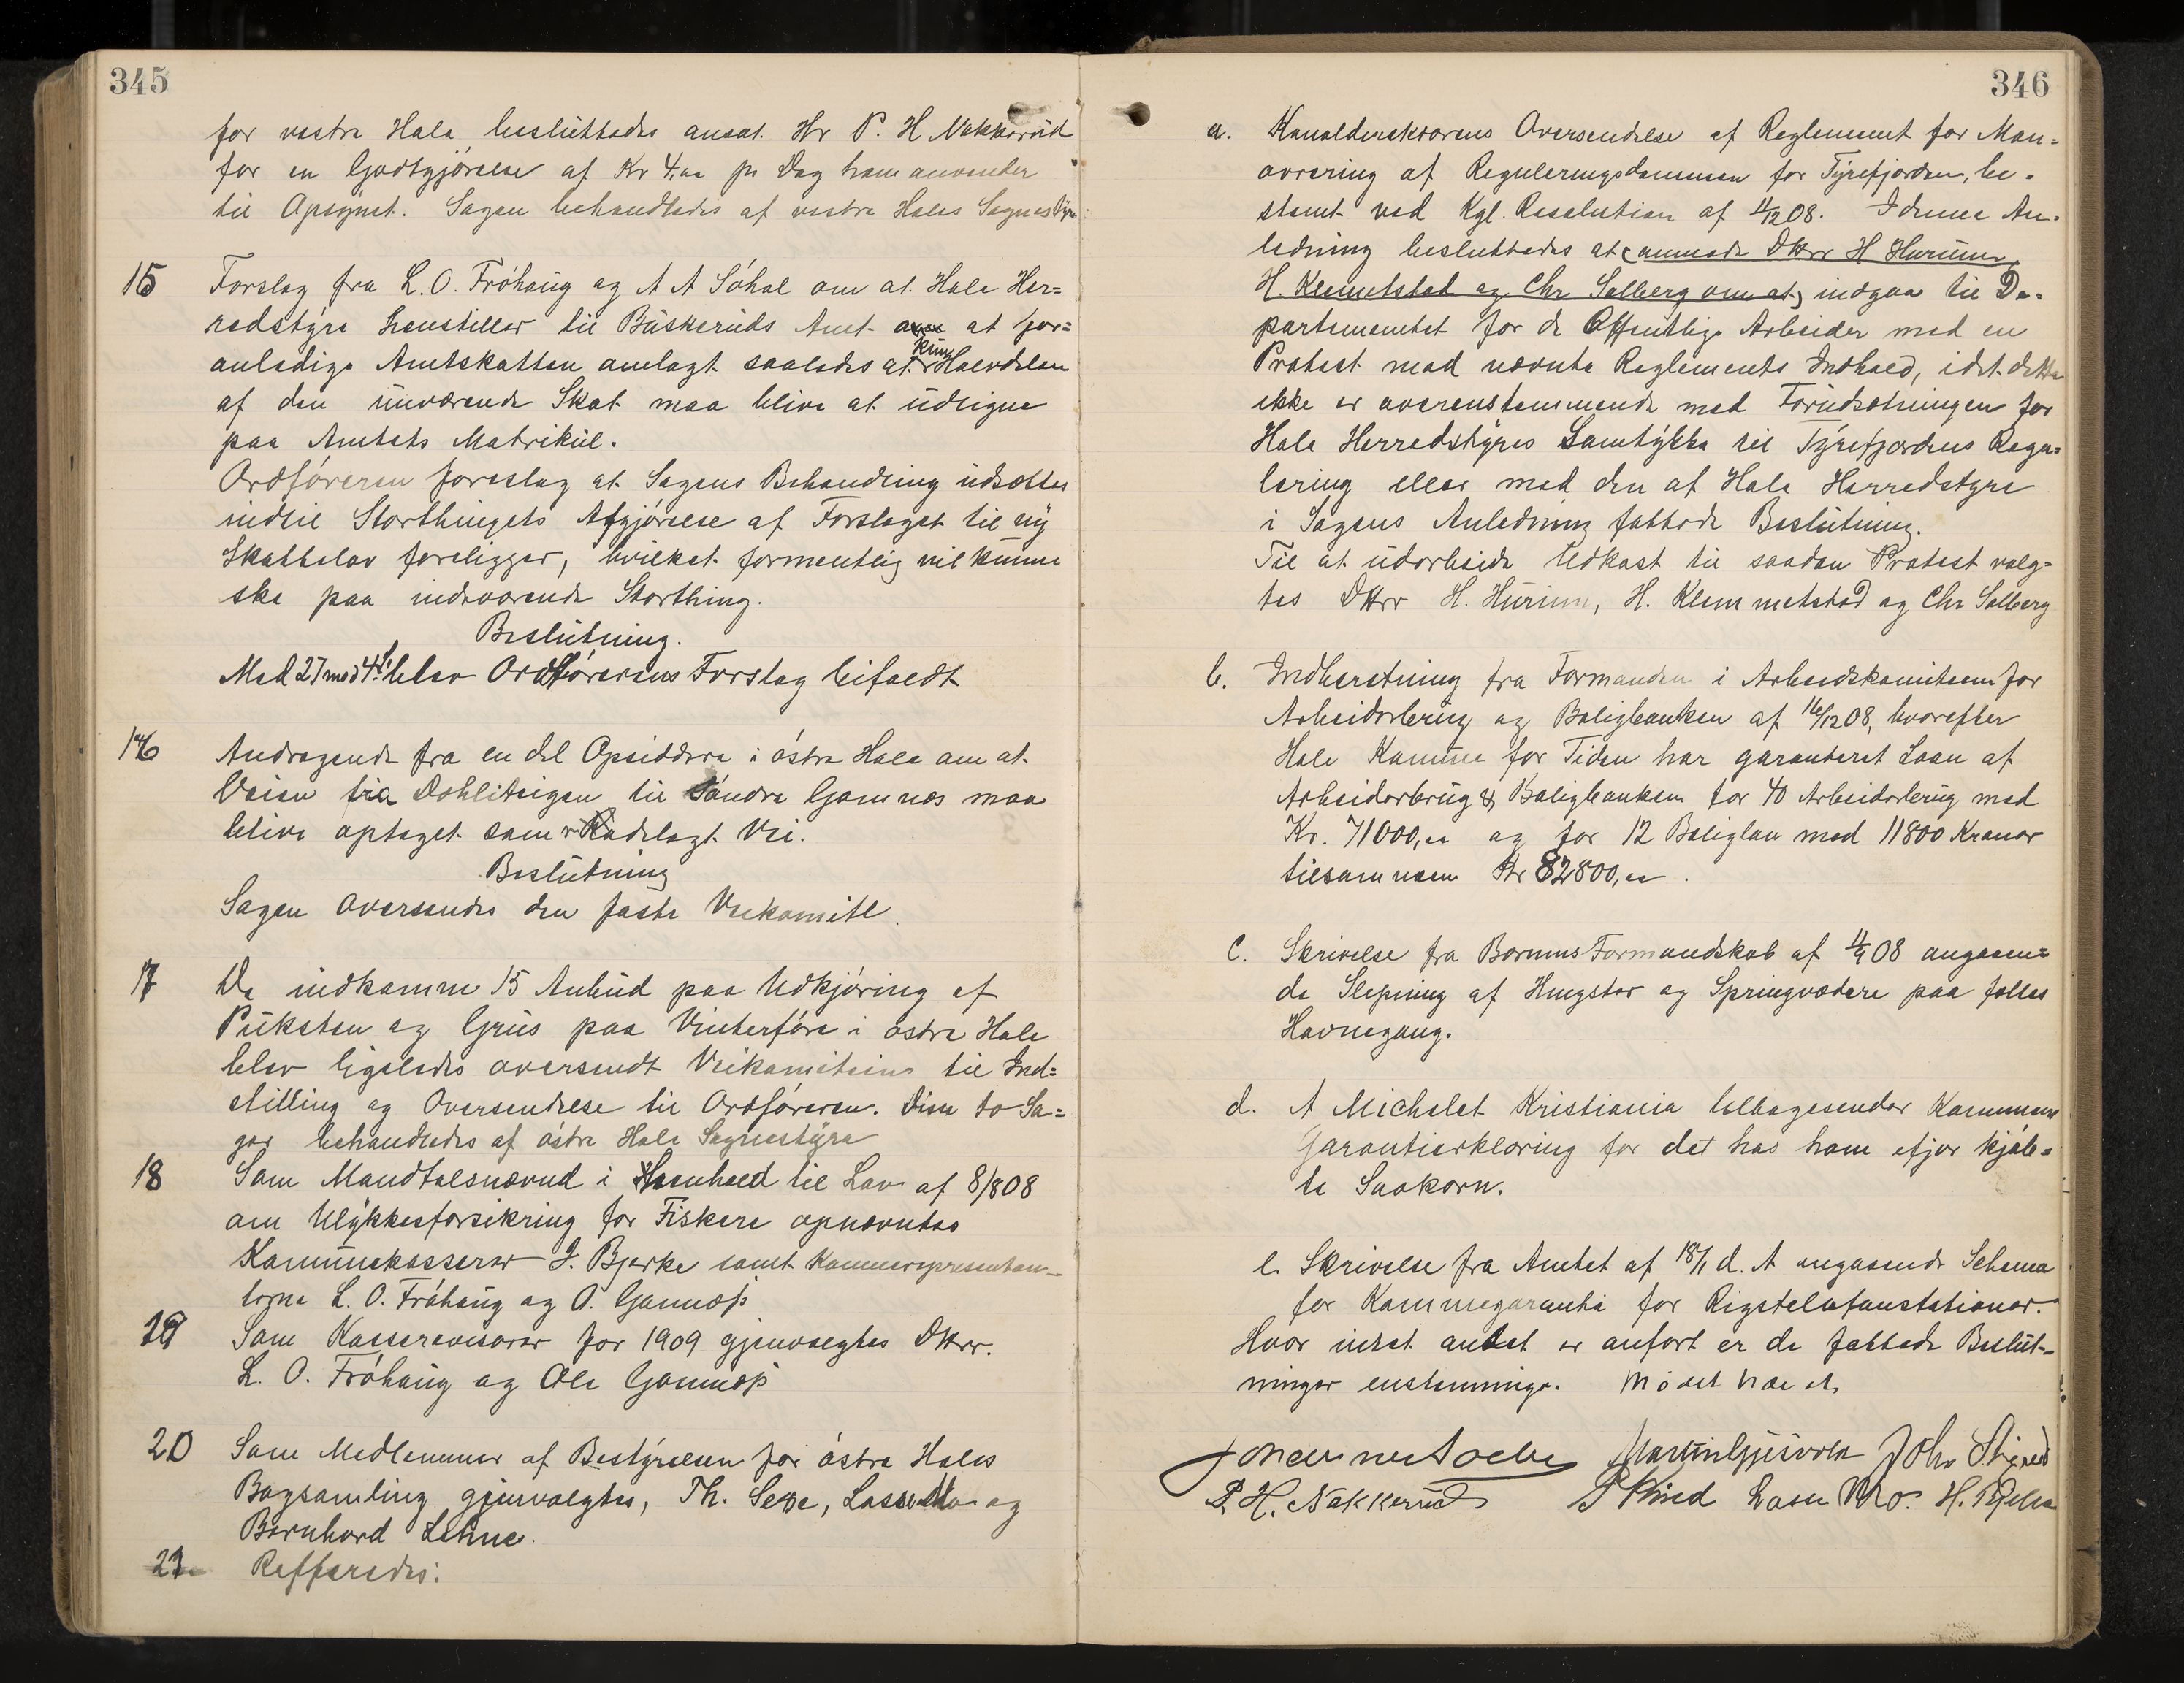 345
for vestre Hole besluttedes ansat Hr P. H Nakkerud
for en Godtgjörelse af Kr 4,00 pr Dag han anvender
til Opsynet. Sagen behandledes af vestre Holes Sognestyre
15 Forslag fra L. O. Fröhaug og A A Söhol om at Hole Her=
redstyre henstiller til Buskeruds Amt at for=
anledige Amtskatten anlagt saaledes at kun Halvdelen
af den nuværende Skat maa blive at udligne
paa Amtets Matrikul.
Ordföreren foreslog at Sagens Behandling udsættes
indtil Storthingets Afgjörelse af Forslaget til ny
Skattelov foreligger, hvilket formentlig vil kunne
ske paa indeværende Storthing.
Beslutning.
Med 27 mod 4 St. blev Ordförerens Forslag bifaldt
16 Andragende fra en del Opsiddere i östre Hole om at
Veien fra Dohliteigen til Söndre Gomnæs maa
blive optaget som Rodelagt Vei.
Beslutning
Sagen oversendes den faste Veikomite.
17 De indkomne 15 Anbud paa Udkjöring af
Puksten og Grus paa Vinterföre i östre Hole
blev ligeledes oversendt Veikomiteen til Ind=
stilling og Oversendelse til Ordföreren. Disse to Sa=
ger behandledes af östre Hole Sognestyre
18 Som Mandtalsnævnd i Henhold til Lov af 8/8 08
om Ulykkesforsikring for Fiskere opnævntes
Kommunekasserer J. Bjerke samt Kommunerepresentan-
terne L. O. Fröhaug og O. Gomnæs
19 Som Kasserevisorer for 1909 gjenvalgtes DHrr.
L. O. Fröhaug og Ole Gomnæs
20 Som Medlemmer af Bestyrelsen for östre Holes
Bogsamling gjenvalgtes, Th. Sexe, Lasse Mo og
Bernhard Lehne.
21 Refferedes:
346
a. Kanaldirektörens Oversendelse af Reglement for Man=
övrering af Reguleringsdammen for Tyrefjorden, be=
stemt ved Kgl. Resolution af 4/12 08. I denne An=
ledning besluttedes at (anmode DHrr H Hurum,
H. Klemmetstad og Chr Solberg om at) indgaa til De=
partementet for de Offentlige Arbeider med en
Protest mod nævnte Reglements Indhold, idet dette
ikke er overenstemmende med Forudsætningen for
Hole Herredstyres Samtykke til Tyrefjordens Regu=
lering eller med den af Hole Herredstyre
i Sagens Anledning fattede Beslutning.
Til at udarbeide Udkast til saadan Protest valg=
tes DHrr H. Hurum, H. Klemmetstad og Chr Solberg
b. Indberetning fra Formanden i Arbeidskomiteen for
Arbeiderbrug og Boligbanken af 16/12 08, hvorefter
Hole Komune for Tiden har garanteret Laan af
Arbeiderbrug & Boligbanken for 40 Arbeiderbrug med
Kr. 71000,00 og for 12 Boliglan med 11800 Kroner
tilsammen Kr 82800,00.
c. Skrivelse fra Bærums Formandskab af 4/9 08 angaaen=
de Slepning af Hingster og Springvædere paa fælles
Havnegang.
d. A Michelet Kristiania tilbagesender Kommunens
Garantierklæring for det hos ham ifjor kjöb=
te Saakorn.
e. Skrivelse fra Amtet af 18/1 d. A angaaende Schema
for Kommunegarantie for Rigstelefonstationer.
Hvor intet andet er anfört er de fattede Beslut-
ninger enstemmige. Mödet hævet.
Martin Gjesvold John Stigend
P. H. Nakkerud Lasse Mo.